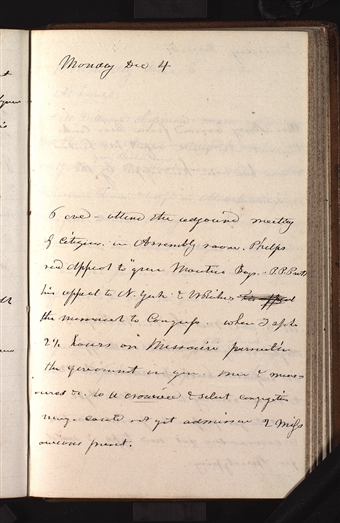 Monday Dec 4
6 eve - attend the adjourned meeting
of Citizens in Assembly room. Phelps
read Appeal to "green Mountain Boys. P.P. Pratt
his appeal to N. York & W Riches
the memorial to Congress. when I spoke
2½ hours on Missouri
the government in gen. men &
to a crowded & select congregation
many could not get admission 2
present.